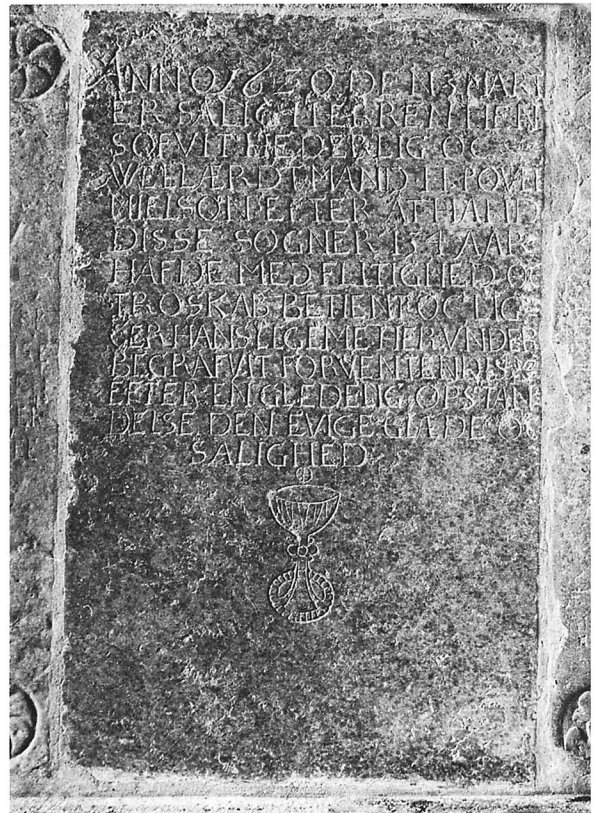 ANNO 1620 DEN 3 MARTI
ER SALIG HEREN HEN
SOFVIT HEDERLIG OC
WELLÆRDT MAND H POVEL
NIELSØN EFTER AT HAND
DISSE SOGNER I AAR
HAFDE MED FLITIGHED OC
TROSKAB BETIENT OC LIG
GER HANS LEGEME HER VNDER
BEGRAFVIT FORVENTENDIS
EFTER EN GLEDELIG OPSTAN
DELSE DEN EVIGE GLÆDE OC
SALIGHED